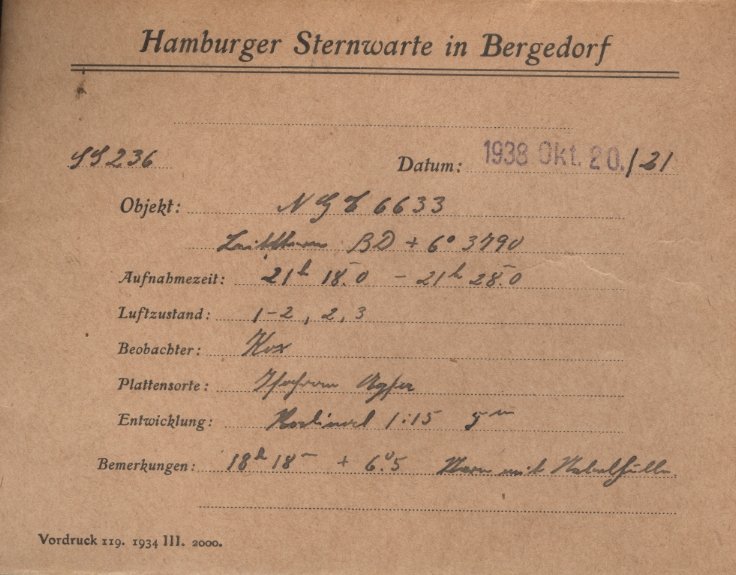 Hamburger Sternwarte in Bergedorf
SS 236 Datum: 1938 Okt. 20./21
Objekt: NGC 6633
Leitstern BD + 6° 3790
Aufnahmezeit: 21h 18m.0 – 21h 28m.0
Luftzustand: 1-2, 2, 3
Beobachter: Kox
Plattensorte: Isochrom Agfa
Entwicklung: Rodinal 1:15 5m
Bemerkungen: 18h 18m + 6°.5 Stern mit Nebelhülle
Vordruck 119. 1934 III. 2000.